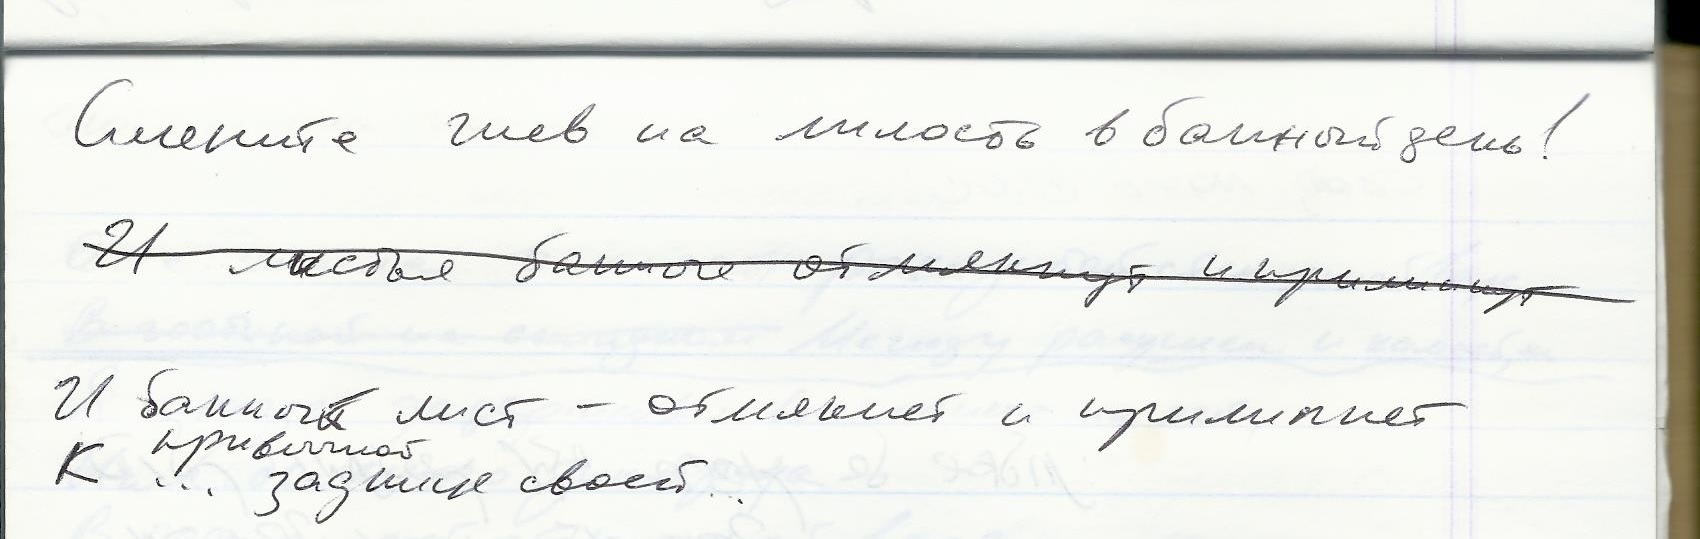 Смените гнев на милость в банный день!
И листья банные отмякнут и прилипнут
И банный лист – отмякнет и прилипнет
привычной
К ... заднице своей...